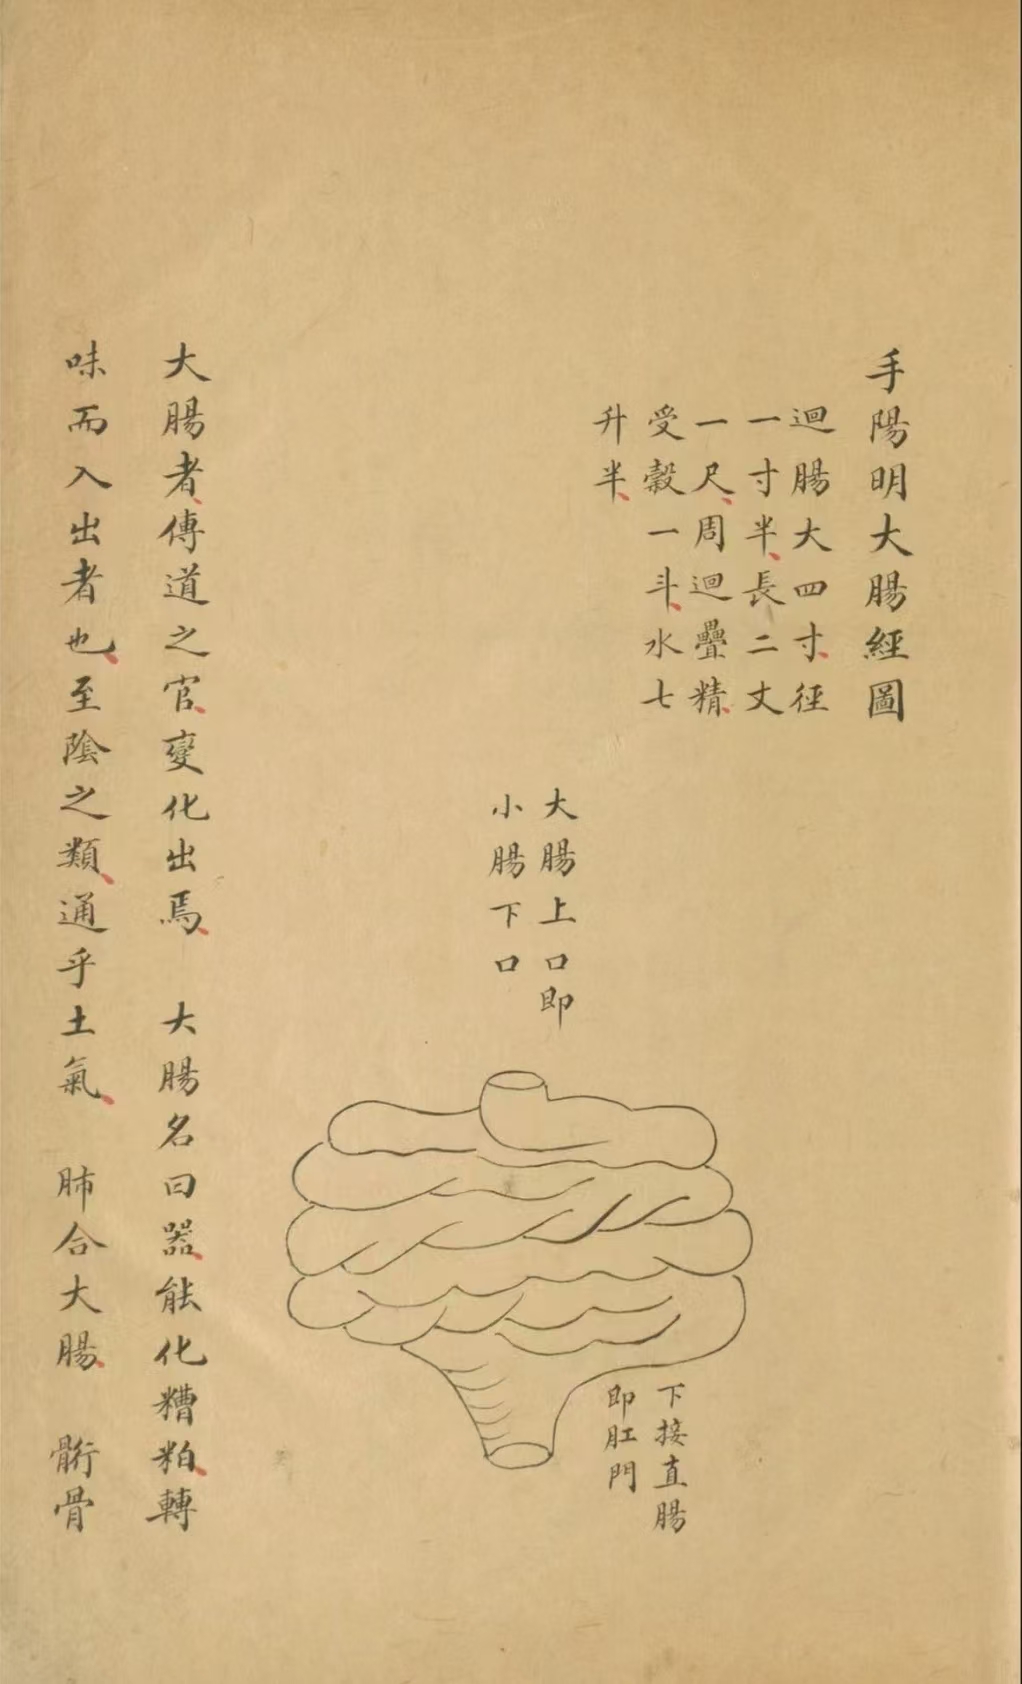 手陽明大腸經圖
迴腸大四寸徑
一寸半長二丈
一尺周迴疊精
受穀一斗水七
升半
大腸上口即
小腸下口
下接直腸
即肛門
大腸者傳道之官變化出焉 大腸名曰器能化糟粕轉
味而入出者也至陰之類通乎土氣 肺合大腸 䯒骨